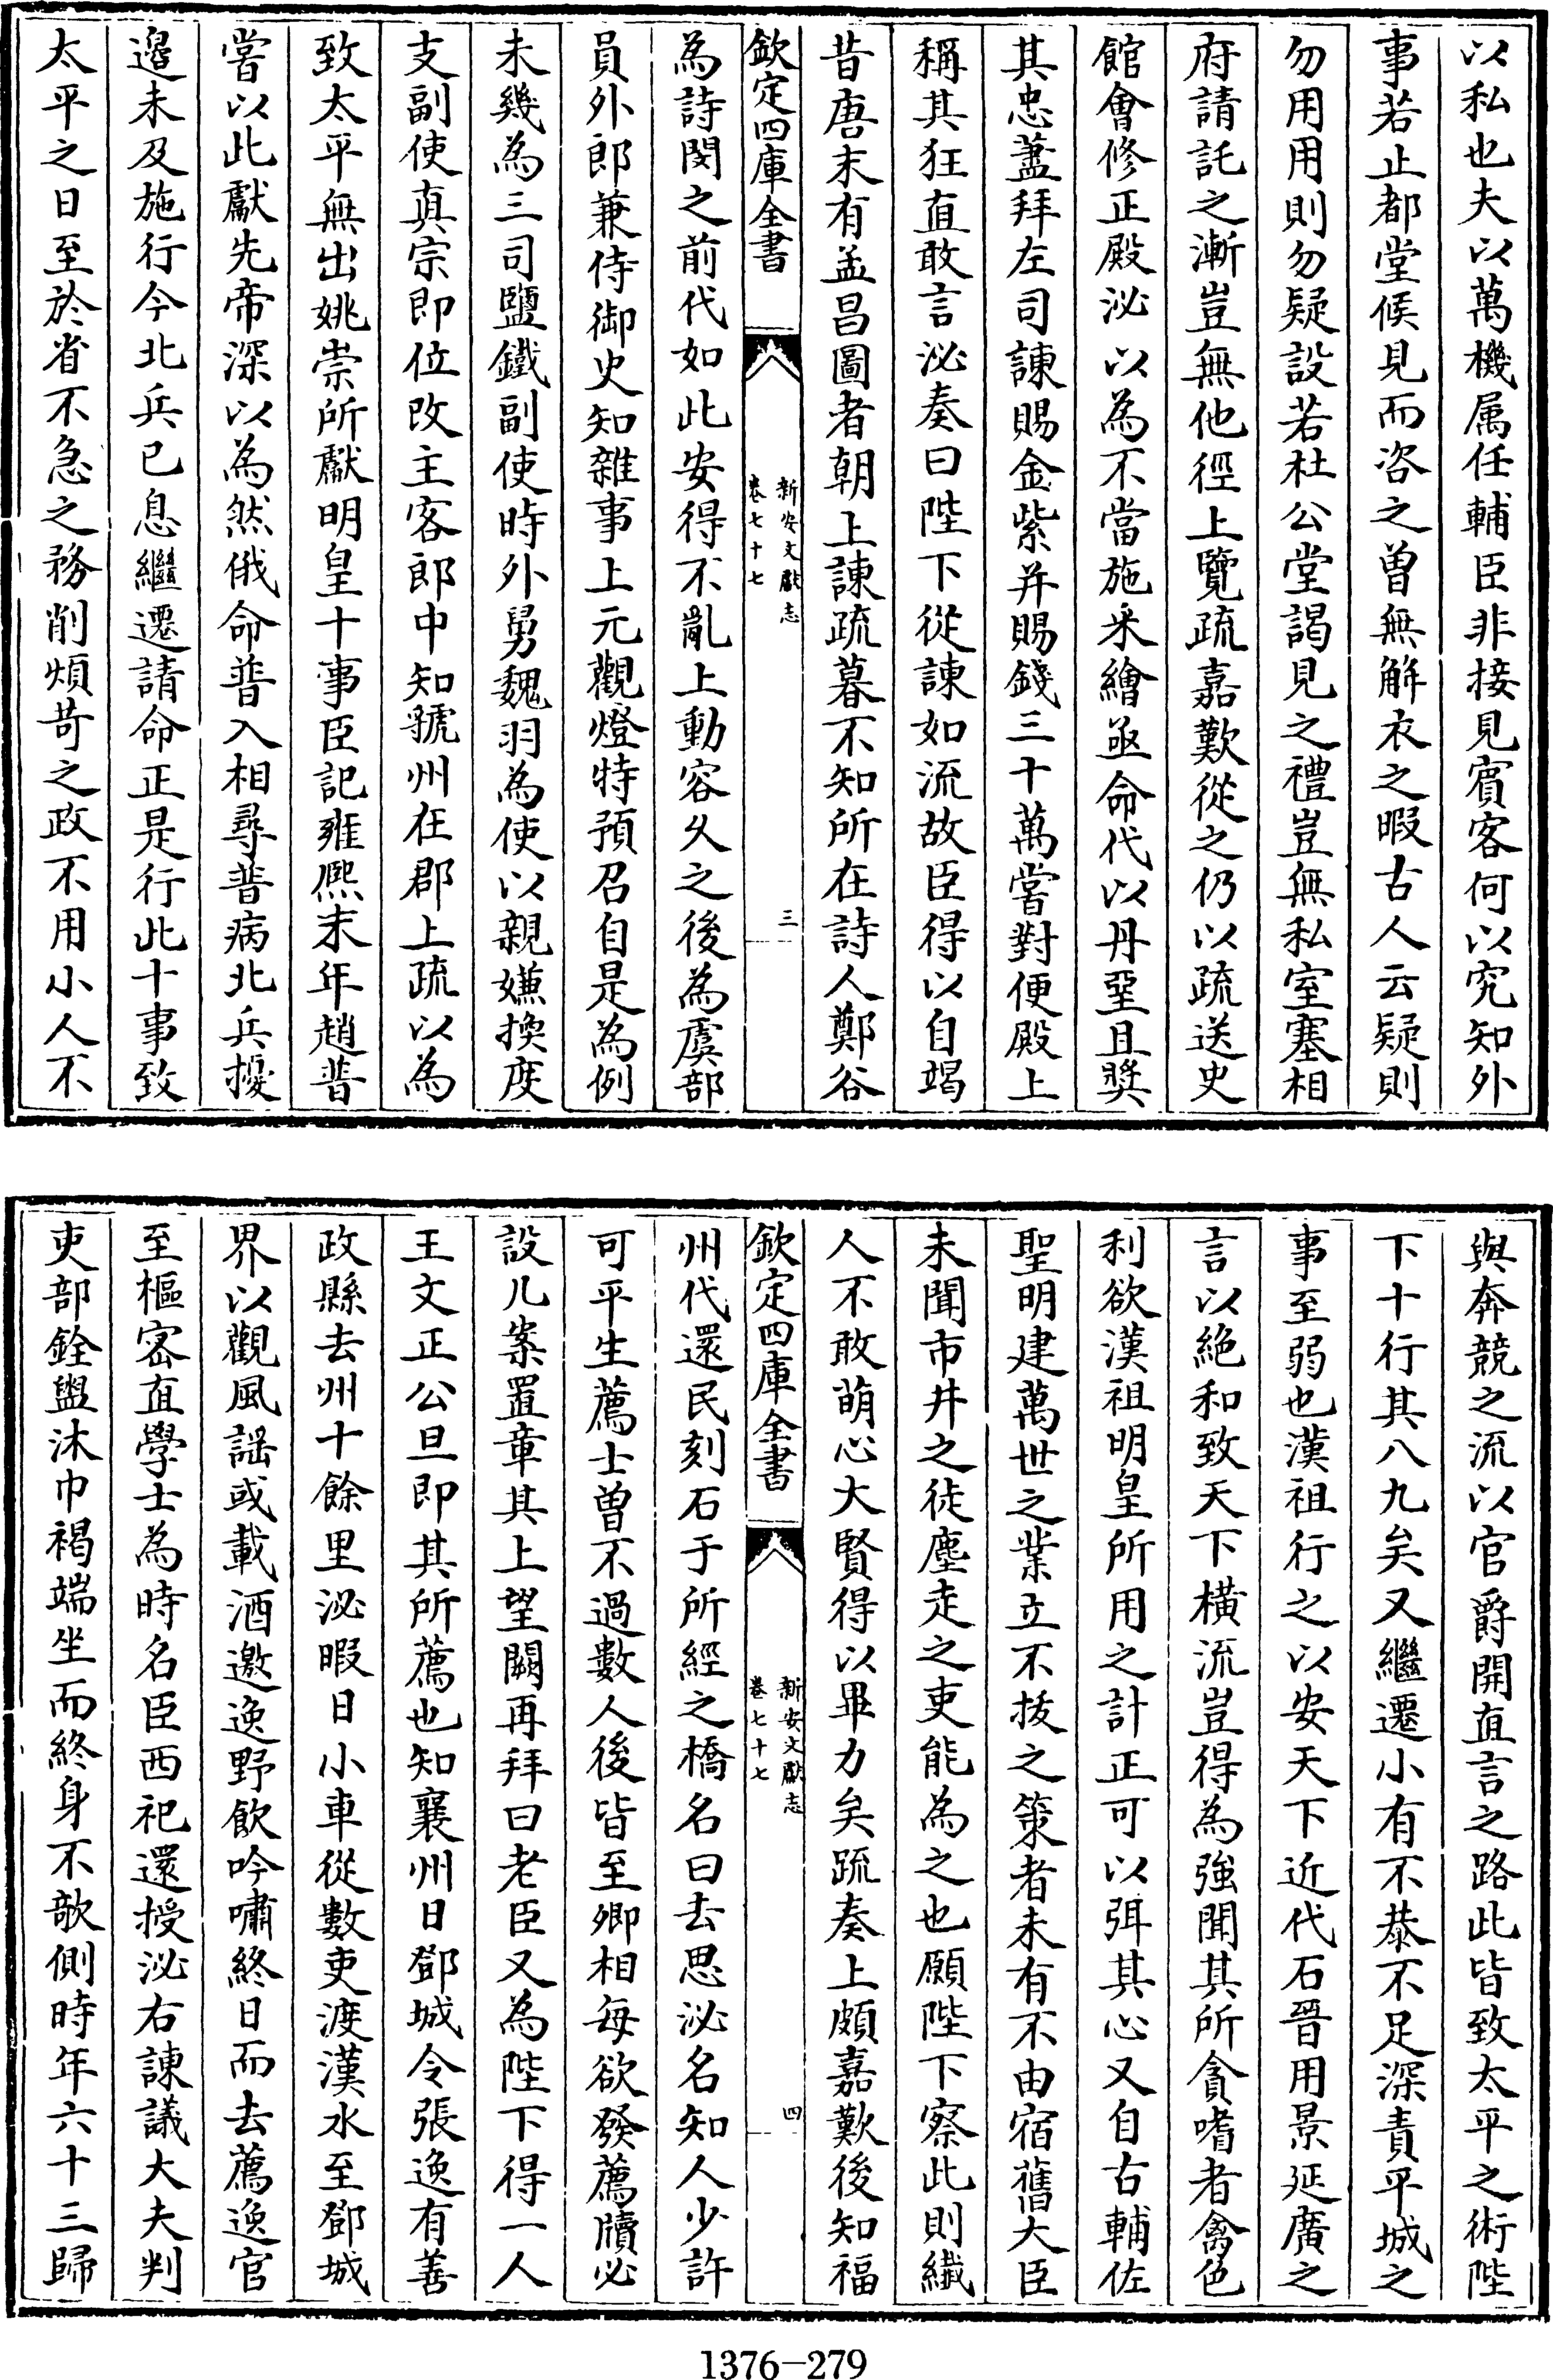 以私也夫以萬機属任輔臣非接見賓客何以究知外
事若止都堂候見而咨之曽無解衣之暇古人云疑則
勿用用則勿疑設若杜公堂謁見之禮豈無私室塞相
府請託之漸豈無他徑上覽疏嘉歎從之仍以疏送史
館㑹修正殿泌以為不當施采繪亟命代以丹堊且奬
其忠藎拜左司諫賜金紫并賜錢三十萬嘗對便殿上
稱其狂直敢言泌奏曰陛下從諫如流故臣得以自竭
昔唐末有孟昌圖者朝上諫疏暮不知所在詩人鄭谷
欽定四庫全書
新安文獻志
卷七十七
三
為詩閔之前代如此安得不亂上動容久之後為虞部
員外郎兼侍御史知雜事上元觀燈特預召自是為例
未幾為三司鹽鐵副使時外舅魏羽為使以親嫌換度
支副使真宗即位改主客郎中知虢州在郡上疏以為
致太平無出姚崇所獻明皇十事臣記雍熙末年趙普
嘗以此獻先帝深以為然俄命普入相尋普病北兵擾
邉未及施行今北兵已息繼遷請命正是行此十事致
太平之日至於省不急之務削煩苛之政不用小人不
與奔競之流以官爵開直言之路此皆致太平之術陛
下十行其八九矣又繼遷小有不恭不足深責平城之
事至弱也漢祖行之以安天下近代石晉用景延廣之
言以絶和致天下横流豈得為強聞其所貪嗜者禽色
利欲漢祖明皇所用之計正可以弭其心又自古輔佐
聖明建萬世之業立不拔之策者未有不由宿舊大臣
未聞市井之徒塵走之吏能為之也願陛下察此則纎
人不敢萌心大賢得以畢力矣疏奏上頗嘉歎後知福
欽定四庫全書
新安文獻志
卷七十七
四
州代還民刻石于所經之橋名曰去思泌名知人少許
可平生薦士曽不過數人後皆至卿相每欲發薦牘必
設几案置章其上望闕再拜曰老臣又為陛下得一人
王文正公旦即其所薦也知襄州日鄧城令張逸有善
政縣去州十餘里泌暇日小車從數吏渡漢水至鄧城
界以觀風謡或載酒邀逸野飲吟嘯終日而去薦逸官
至樞宻直學士為時名臣西祀還授泌右諫議大夫判
吏部銓盥沐巾褐端坐而終身不欹側時年六十三歸
1376-279